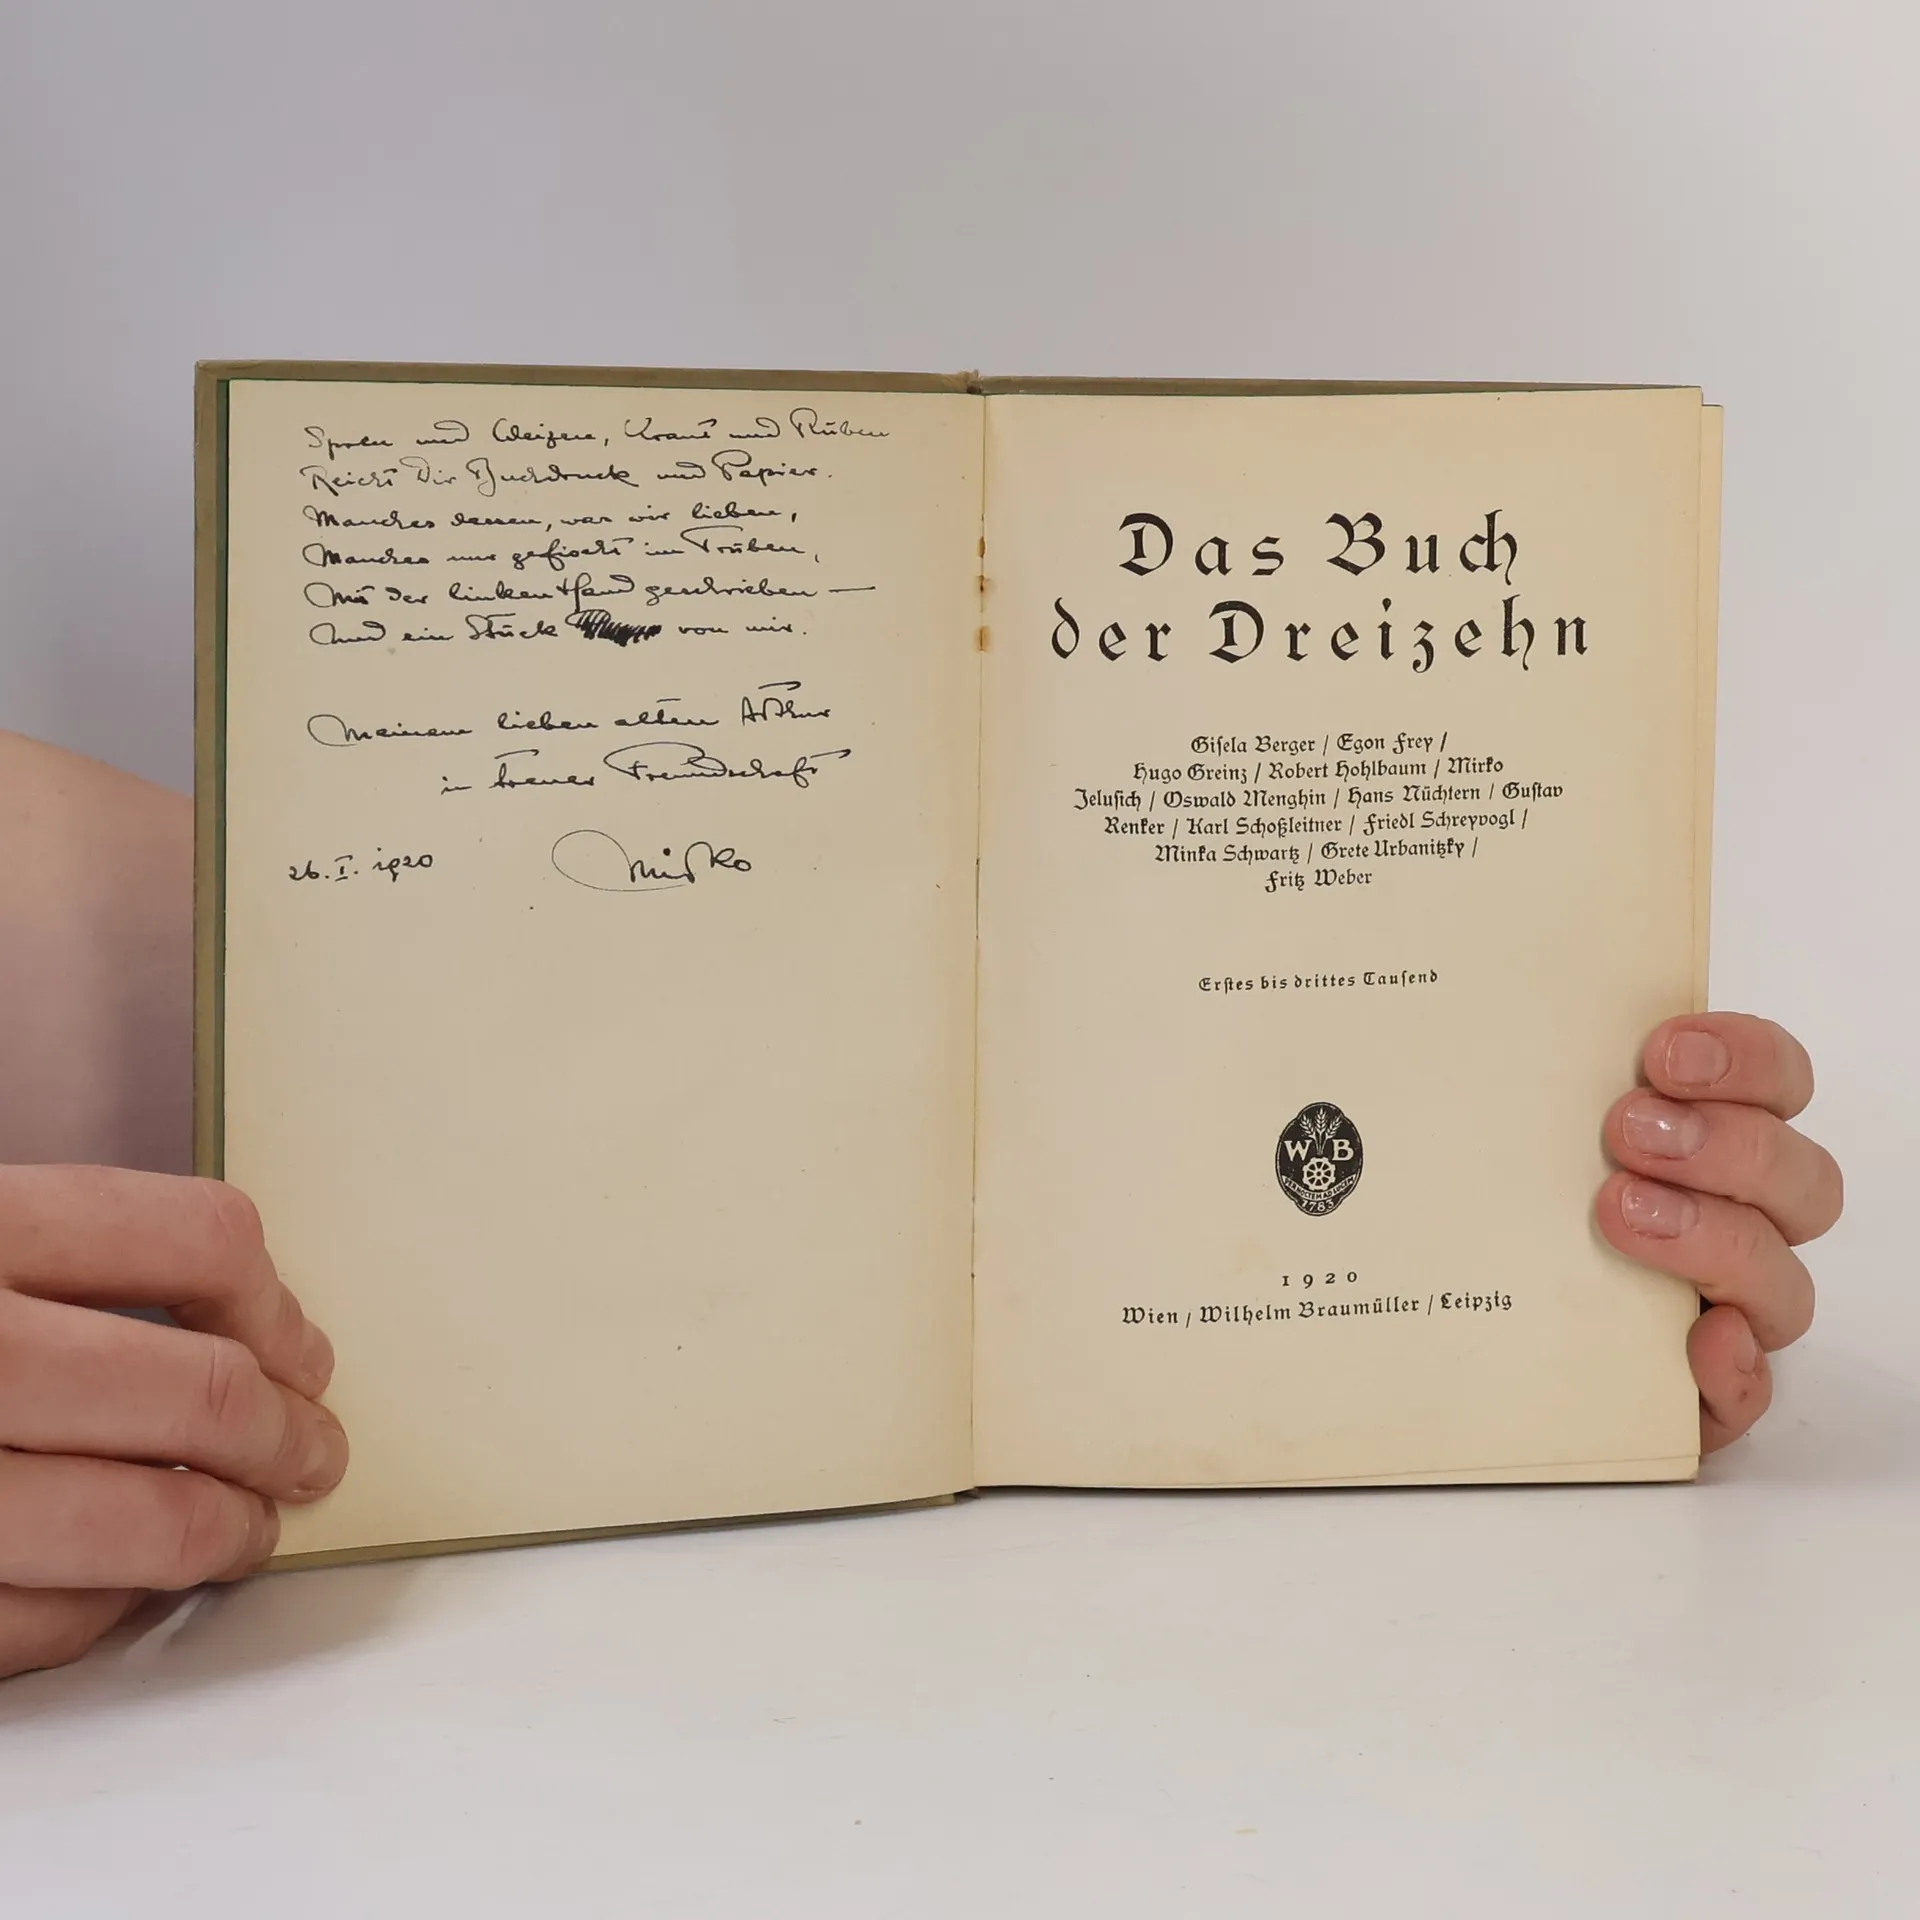 Spreu und Weizen, Kraut und Rüben
Reicht Dir Buchdruck und Papier.
Manches dessen, was wir lieben,
Manches nur gefischt im Trüben,
Mit der linken Hand geschrieben —
Und ein Stück von mir.
Meinem lieben alten Arthur
in treuer Freundschaft
26. I. 1920 Mirko
Das Buch
der Dreizehn
Gisela Berger / Egon Frey /
Hugo Greinz / Robert Hohlbaum / Mirko
Jelusich / Oswald Menghin / Hans Nüchtern / Gustav
Renker / Karl Schoßleitner / Friedl Schreyvogl /
Minka Schwartz / Grete Urbanitzky /
Fritz Weber
Erstes bis drittes Tausend
W B
PER NOCTEM AD LUCEM
1783
1920
Wien / Wilhelm Braumüller / Leipzig